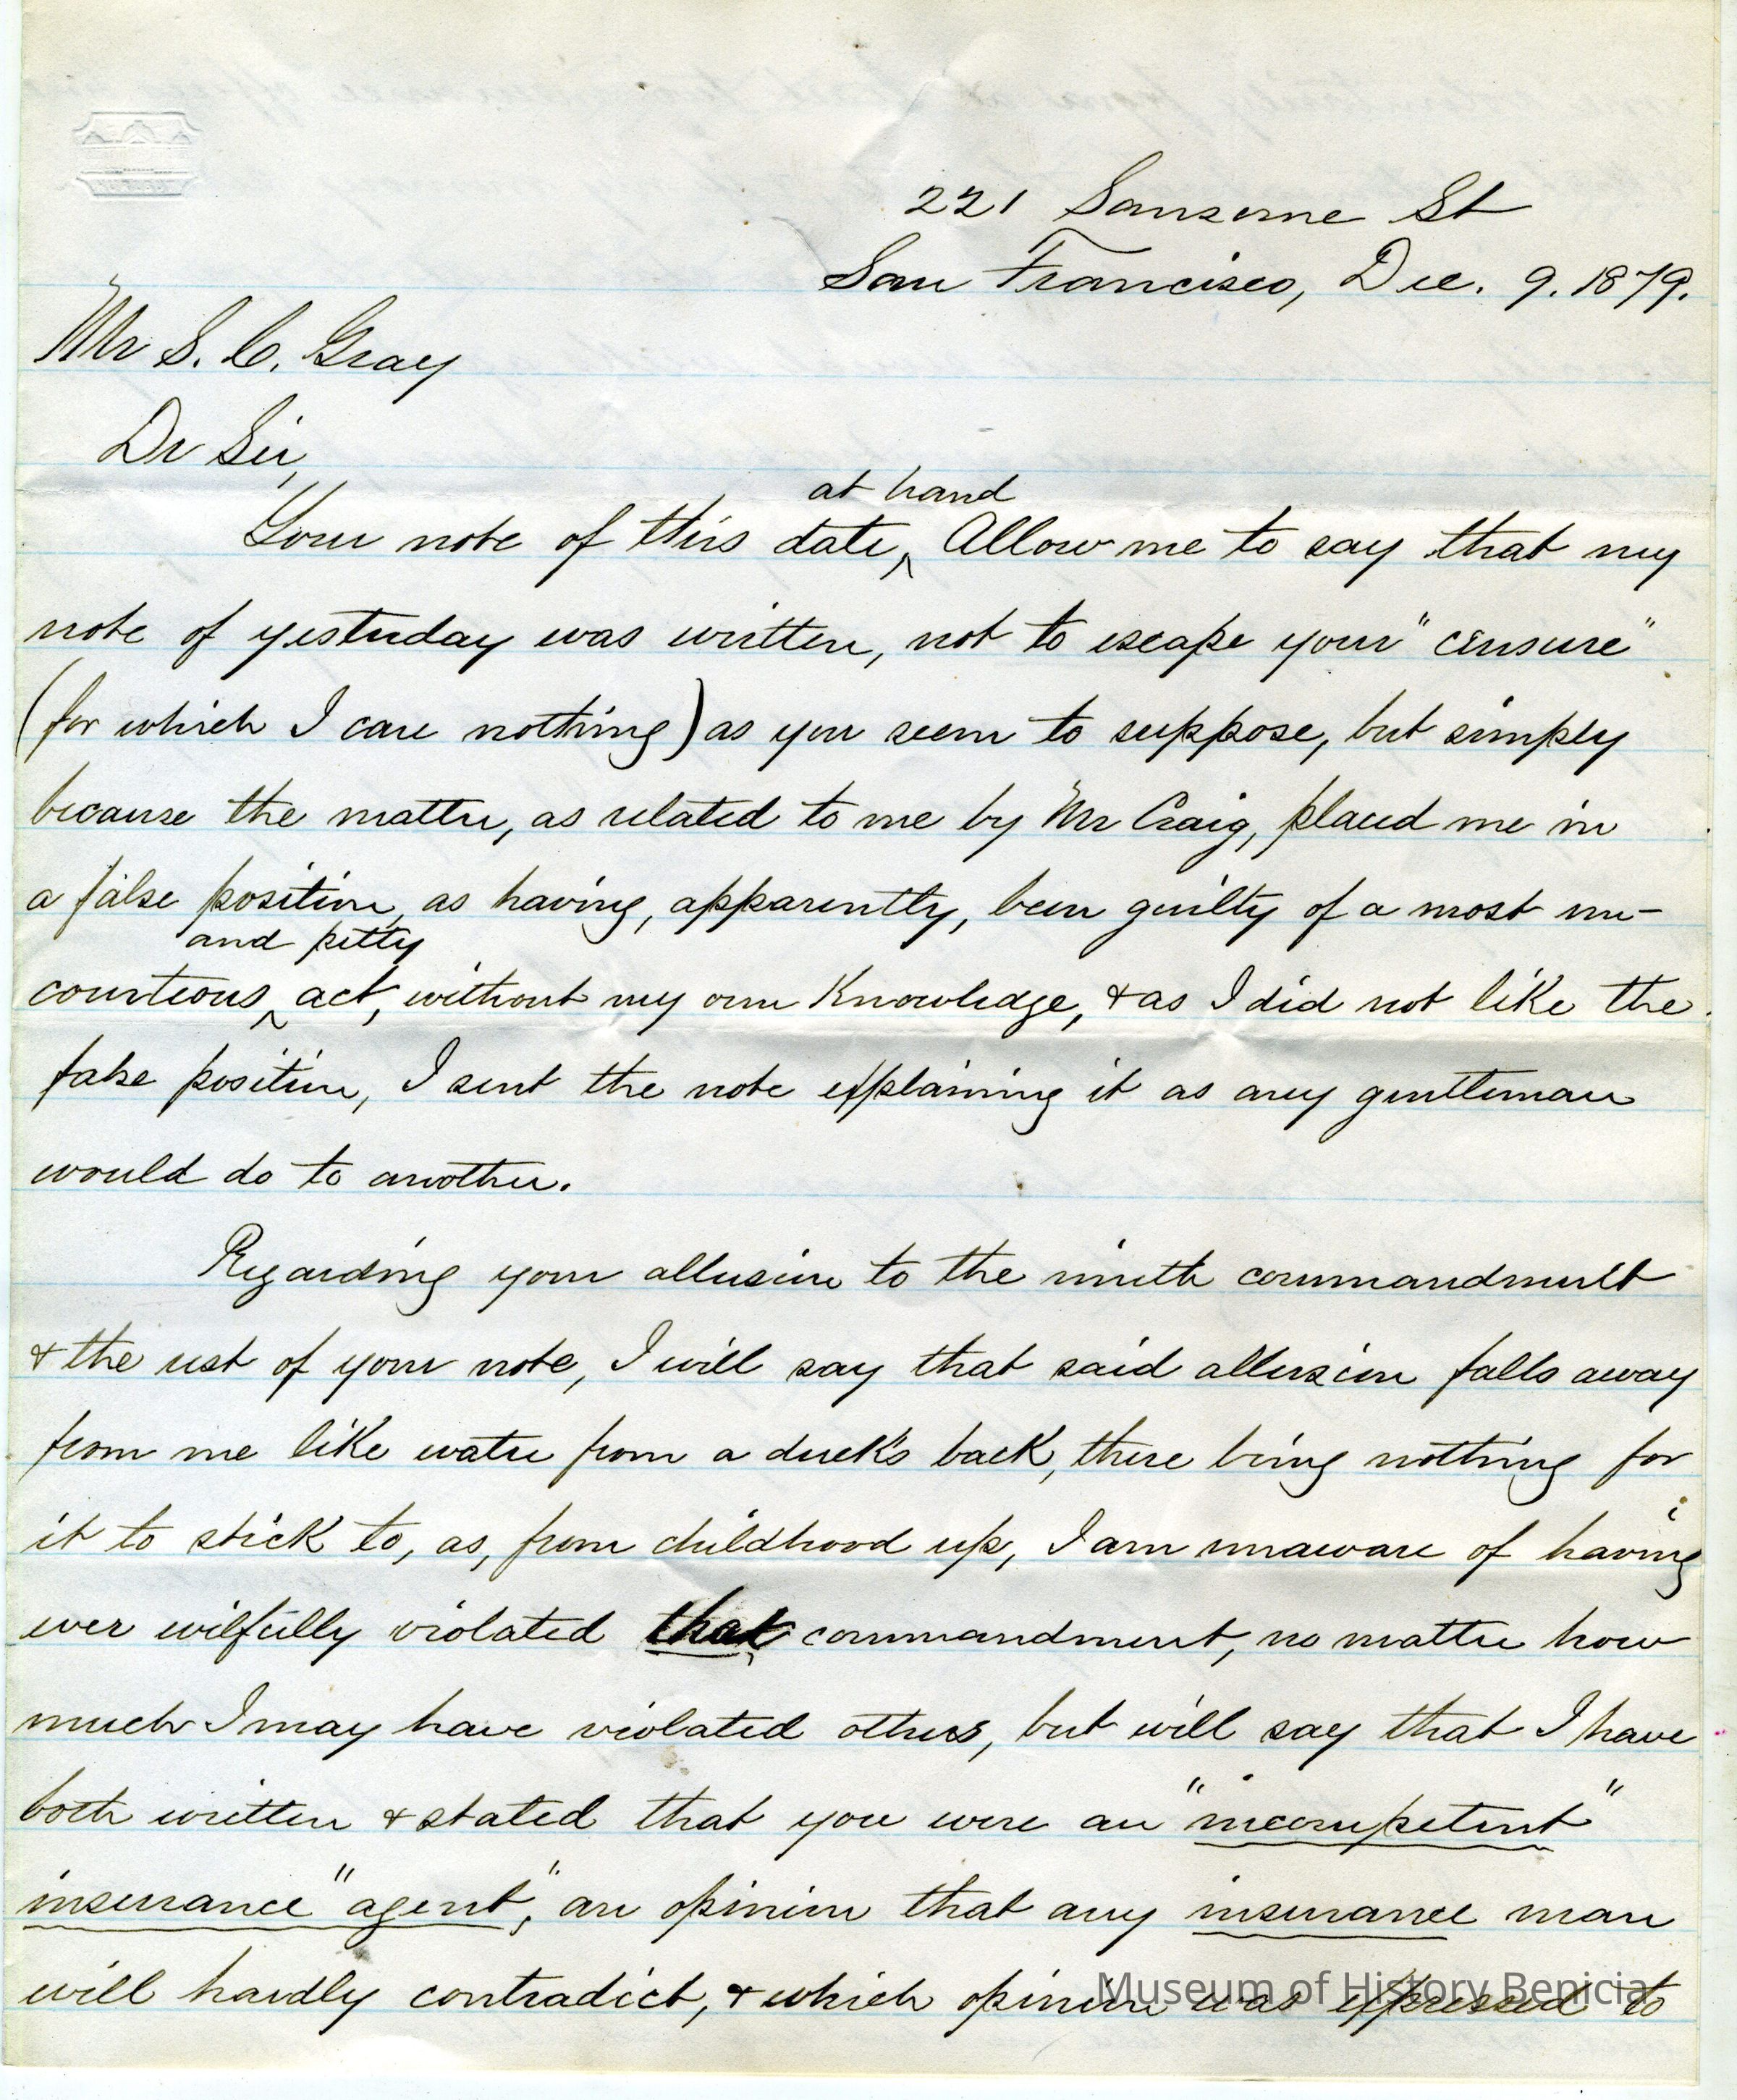 221 Sansome St
San Francisco, Dec. 9. 1879.
Mr S. C. Gray
Dr Sir,
at hand
Your note of this date, ^ Allow me to say that my
note of yesterday was written, not to escape your "censure"
(for which I care nothing) as you seem to suppose, but simply
because the matter, as related to me by Mr Craig, placed me in
a false position, as having, apparently, been guilty of a most un-
and petty
courteous ^ act, without my own Knowledge, & as I did not like the
false position, I sent the note explaining it as any gentleman
would do to another.
Regarding your allusion to the ninth commandment
& the rest of your note, I will say that said allusion falls away
from me like water from a duck's back, there being nothing for
it to stick to, as, from childhood up, I am unaware of having
ever wilfully violated that commandment, no matter how
much I may have violated others, but will say that I have
both written & stated that you were an "incompetent"
insurance "agent", an opinion that any insurance man
will hardly contradict, & which opinion was expressed to
Museum of History Benicia